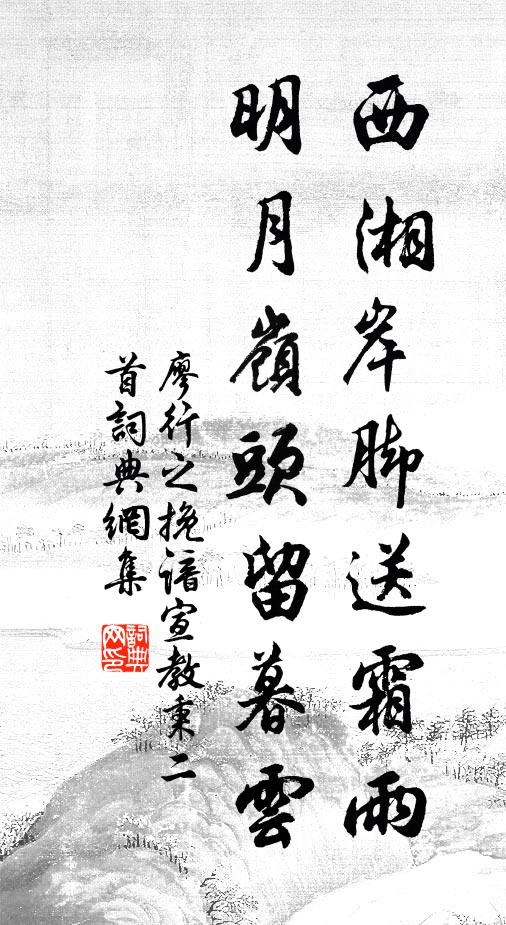 西湘岸脚送霜雨
明月嶺頭留暮雲
廖行之挽諳宣教秉二
首詞典網集
詞典